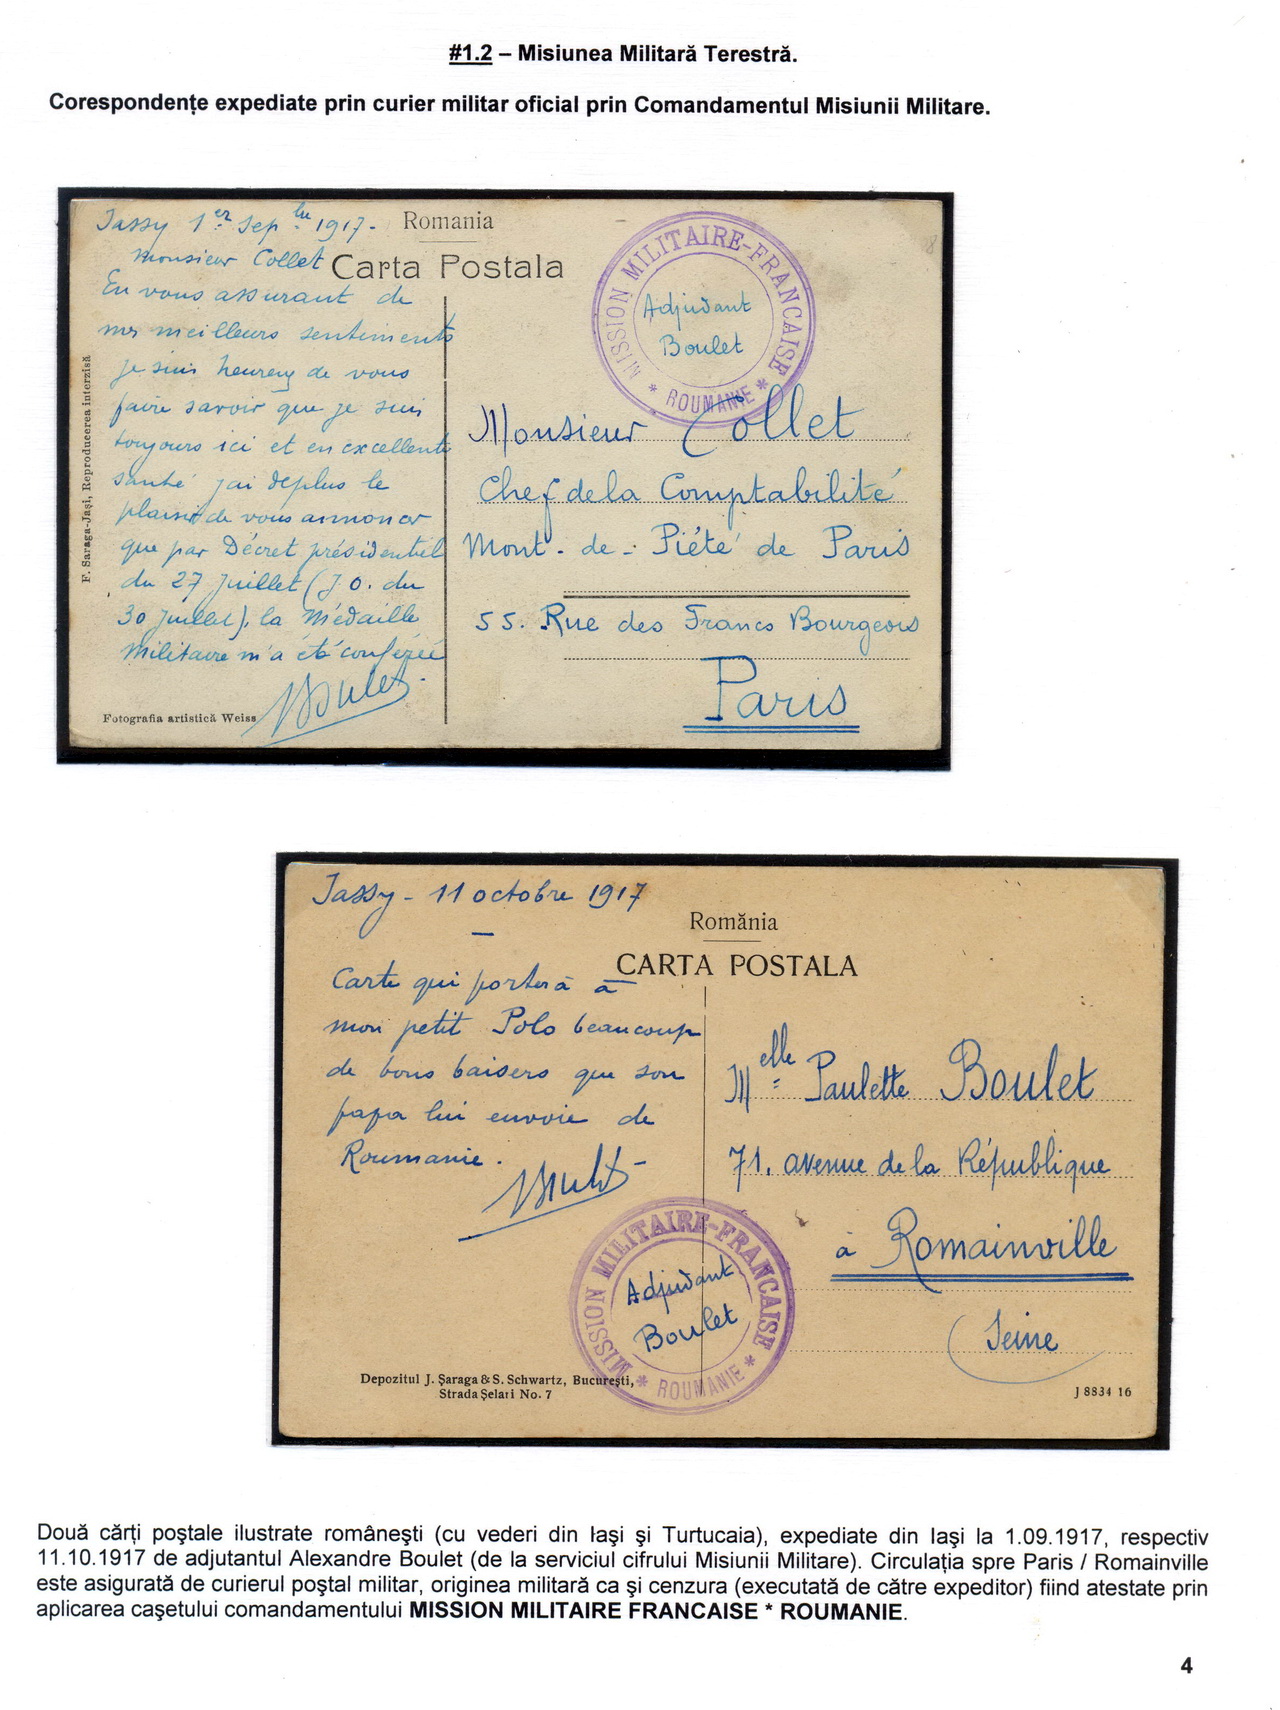 #1.2 – Misiunea Militară Terestră.
Corespondenţe expediate prin curier militar oficial prin Comandamentul Misiunii Militare.
Jassy 1er Sepbre 1917.
Romania
Carta Postala
Monsieur Collet
En vous assurant de
mes meilleurs sentiments
je suis heureux de vous
faire savoir que je suis
toujours ici et en excellente
santé j'ai deplus le
plaisir de vous annoncer
que par Décret présidentiel
du 27 Juillet (J.O. du
30 Juillet), la Médaille
Militaire m'a été conférée
Boulet.
F. Saraga-Jaşi, Reproducerea interzisă
Fotografia artistică Weiss
MISSION MILITAIRE-FRANCAISE
* ROUMANIE *
Adjudant
Boulet
Monsieur Collet
Chef de la Comptabilité
Mont-de-Piété de Paris
55. Rue des Francs Bourgeois
Paris
Jassy - 11 octobre 1917
Romănia
CARTA POSTALA
Carte qui portera à
mon petit Polo beaucoup
de bons baisers que son
papa lui envoie de
Roumanie.
Boulet
Melle Paulette Boulet
71. avenue de la République
à Romainville
Seine
MISSION MILITAIRE-FRANCAISE
* ROUMANIE *
Adjudant
Boulet
Depozitul J. Şaraga & S. Schwartz, Bucureşti,
Strada Şelari No. 7
J 8834 16
Două cărţi poştale ilustrate româneşti (cu vederi din Iaşi şi Turtucaia), expediate din Iaşi la 1.09.1917, respectiv
11.10.1917 de adjutantul Alexandre Boulet (de la serviciul cifrului Misiunii Militare). Circulaţia spre Paris / Romainville
este asigurată de curierul poştal militar, originea militară ca şi cenzura (executată de către expeditor) fiind atestate prin
aplicarea caşetului comandamentului MISSION MILITAIRE FRANCAISE * ROUMANIE.
4